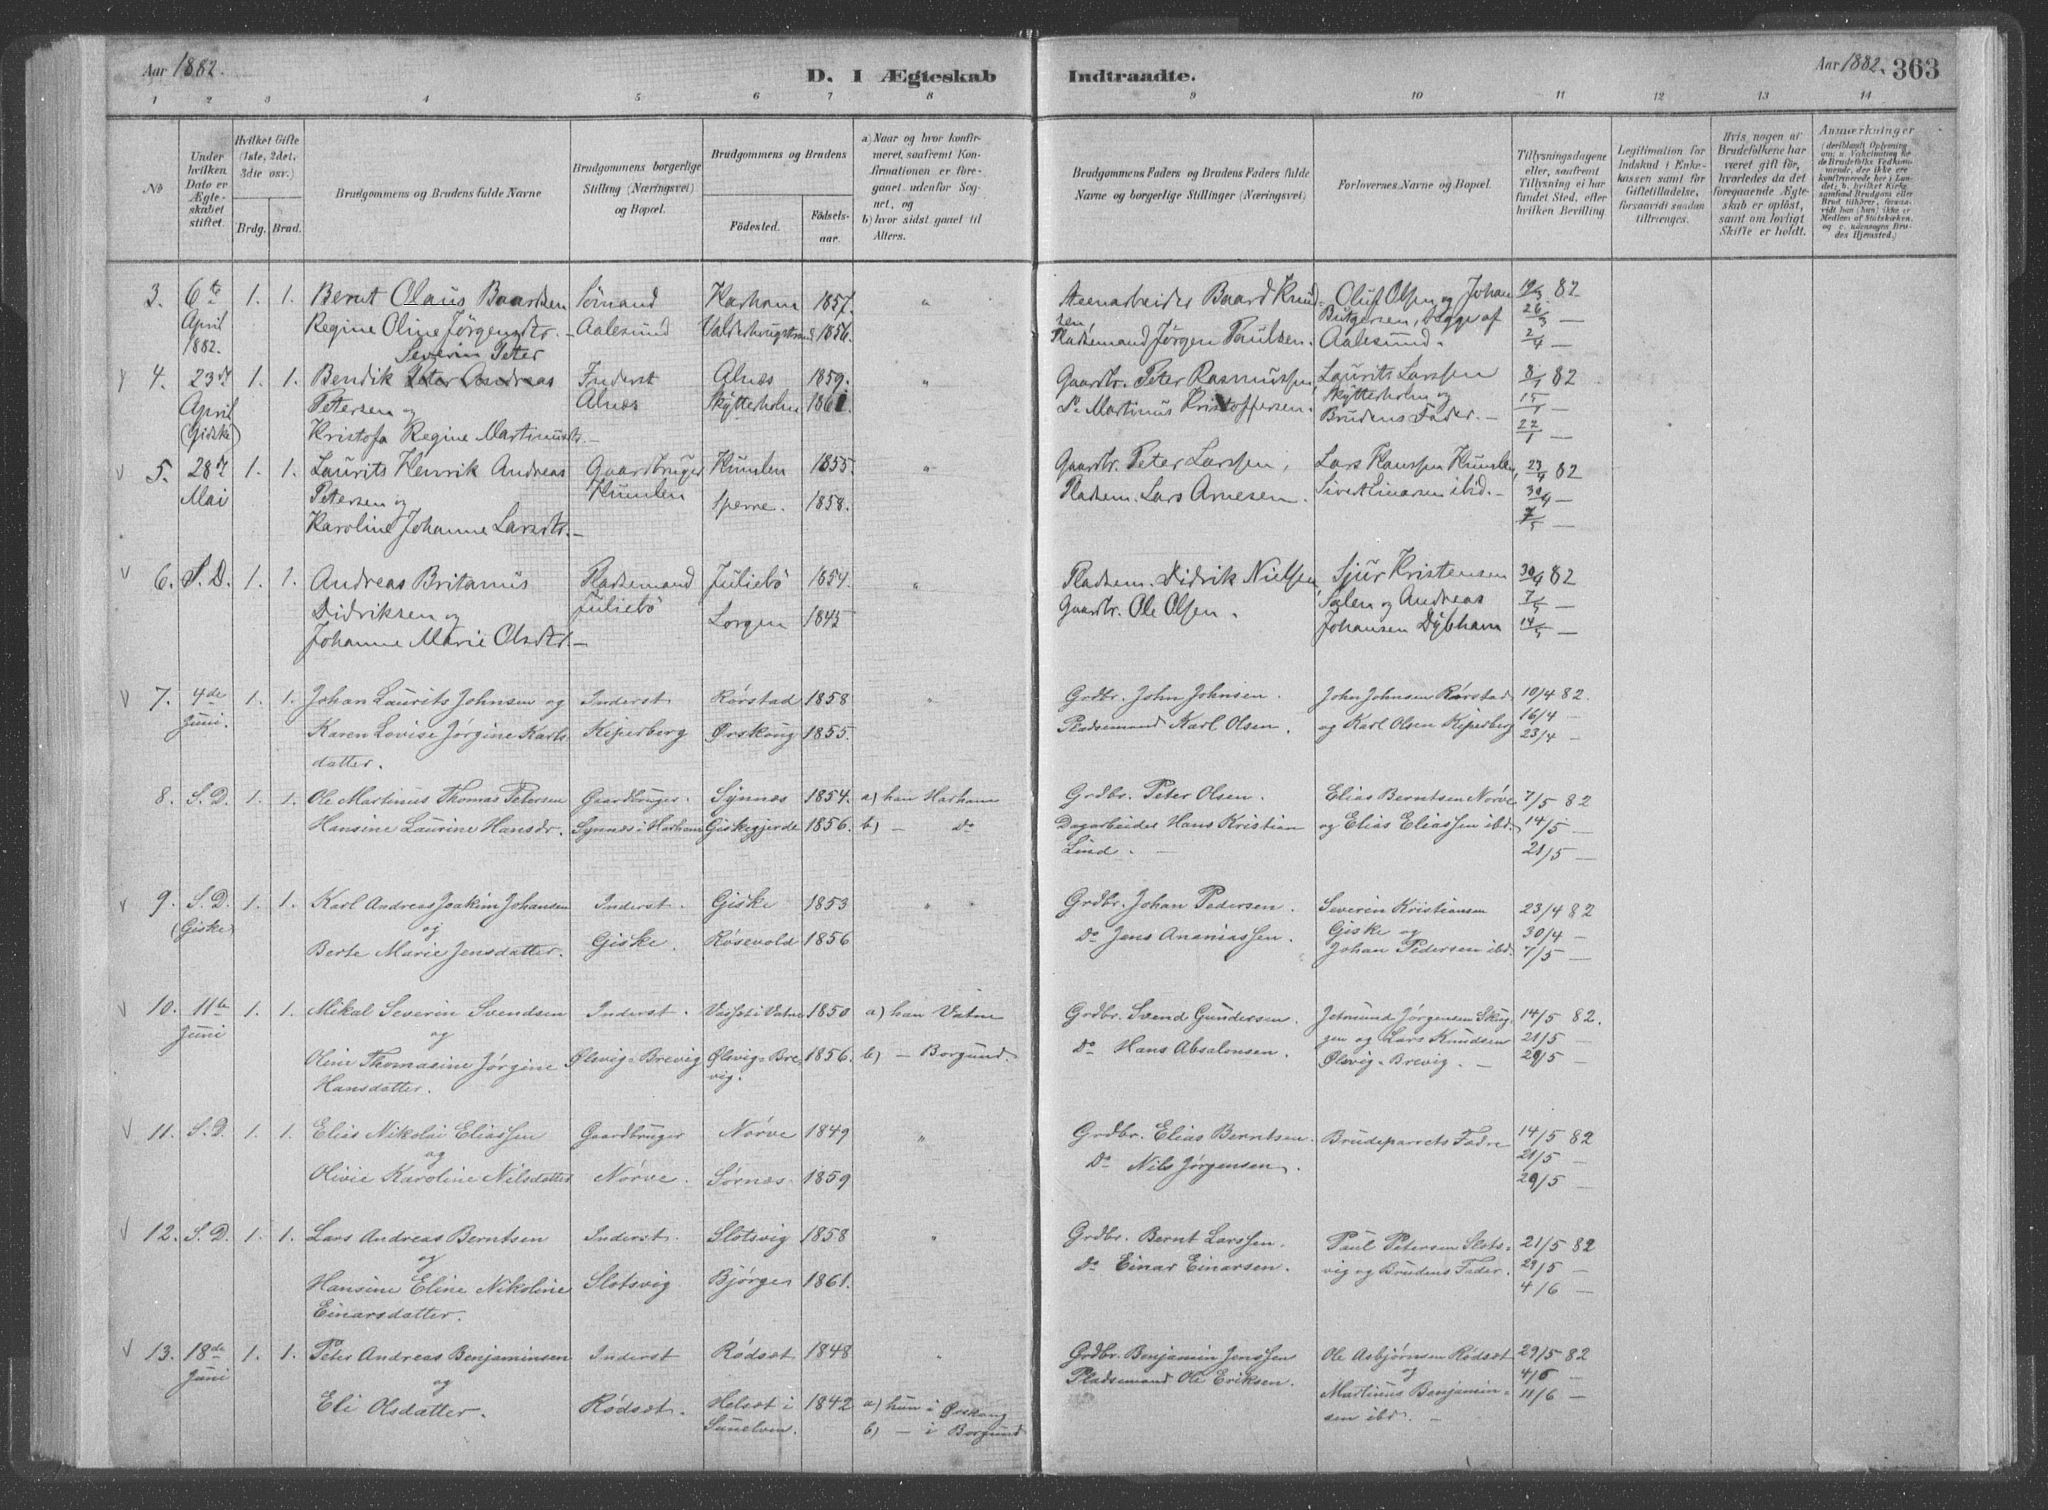 Aar 1882.
D. I Ægteskab
Indtraadte.
Aar 1882. 363
1 2 3 4 5 6 7 8 9 10 11 12 13 14
No
Under hvilken Dato er Ægteskabet stiftet.
Hvilket Gifte (1ste, 2det, 3die osv.)
Brdg. Brud.
Brudgommens og Brudens fulde Navne
Brudgommens borgerlige Stilling (Næringsvei) og Bopæl.
Brudgommens og Brudens
Födested.
Födsels-aar.
a) Naar og hvor konfirmeret, saafremt Konfirmationen er foregaaet udenfor Sognet, og
b) hvor sidst gaaet til Alters.
Brudgommens Faders og Brudens Faders fulde Navne og borgerlige Stillinger (Næringsvei)
Forlovernes Navne og Bopæl.
Tillysningsdagene eller, saafremt Tillysning ei har fundet Sted, efter hvilken Bevilling.
Legitimation for Indskud i Enkekassen samt for Giftetilladelse, forsaavidt saadan tiltrænges.
Hvis nogen af Brudefolkene har været gift för, hvorledes da det foregaaende Ægteskab er oplöst, samt om lovligt Skifte er holdt.
Anmærkninger
3. 6te April 1882. 1. 1. Bernt Olaus Baardsen
Regine Oline Jørgensdtr.
Aalesund
Harham 1857.
1856.
Baard Knudsen,
Pladsemand Jörgen Paulsen.
Oluf Olsen og Johan
begge af Aalesund.
19/3 82
26/3 —
2/4 —
4. 23de April (Gidske) 1. 1. Bendik Severin Peter Andreas
Petersen og
Kristofa Regine Martinusdtr.
Inderst
Alnæs
Alnæs 1859.
Skytterholm 1861.
Gaardbr. Peter Rasmussen,
Do Martinus Kristoffersen.
Laurits Larssen
Skytterholm og
Brudens Fader. —
82
5. 28de Mai 1. 1. Laurits Henrik Andreas
Petersen og
Karoline Johanne Larsdtr.
Gaardbruger
Humlen
Humlen 1855.
Sperre. 1858.
Gaardbr. Peter Larssen,
Pladsem. Lars Arnesen.
Lars Hanssen Humlen,
Sivert Einarsen ibid. —
23/4 82
30/4 —
7/5 —
6. S. D. 1. 1. Andreas Britanus
Didriksen og
Johanne Marie Olsdtr.
Pladsemand
Juliebö
Juliebö 1854.
Lorgen 1845
Pladsem. Didrik Nielsen,
Gaardbr. Ole Olsen.
Sjur Kristensen
og Andreas
Johansen Dybham
30/4 82
7/5 —
14/5 —
7. 4de Juni. 1. 1. Johan Laurits Johnsen og
Karen Lovise Jørgine Karlsdatter.
Inderst
Kiperberg
Rørstad 1858
Ørskoug 1855
Grdbr. John Johnsen.
Pladsemand Karl Olsen.
John Johnsen Rørstad
og Karl Olsen Kiperberg
10/4 82.
16/4 —
23/4 —
8. S. D. 1. 1. Ole Martinus Thomas Petersen
Hansine Laurine Hansdr.
Gaardbruger.
Synnæs i Harham
Synnæs 1854.
Giskegjerde 1856.
a) han Harham
b) — Do
Grdbr. Peter Olsen.
Dagarbeider Hans Kristian
Lind. —
Elias Berntsen Nörve
og Elias Eliassen ibd.
7/5 82
14/5 —
21/5 —
9. S. D. (Giske) 1. 1. Karl Andreas Joakim Johansen
og
Berte Marie Jensdatter.
Inderst.
Giske.
Giske 1853
Røsevold 1856
Grdbr. Johan Pedersen.
Do Jens Ananiassen.
Severin Kristiansen
Giske og
Johan Pedersen ibd.
23/4 82
30/4 —
7/5 —
10. 11te Juni 1. 1. Mikal Severin Svendsen
og
Oline Thomasine Jørgine
Hansdatter.
Inderst.
Ølsvig-Brevig
i Vatne 1850
Ølsvig-Brevig. 1856.
a) han Vatne
b) — Borgund.
Grdbr. Svend Gundersen.
Do Hans Absalonsen.
Jetmund Jørgensen
og Lars Knudsen
Ølsvig-Brevig. —
14/5 82.
21/5 —
29/5 —
11. S. D 1. 1. Elias Nikolai Eliassen
og
Olivie Karoline Nilsdatter
Gaardbruger
Nörve.
Nörve 1849
Sørnæs 1859
Grdbr. Elias Berntsen.
Do Nils Jørgensen.
Brudeparrets Fædre
14/5 82
21/5 —
29/5 —
12. S. D. 1. 1. Lars Andreas Berntsen
og
Hansine Eline Nikoline
Einarsdatter.
Inderst.
Slotsvig
Slotsvig 1858
Bjørge 1861.
Grdbr. Bernt Larssen.
Do Einar Einarsen.
Paul Petersen Slotsvig
og Brudens Fader.
21/5 82
29/5 —
4/6 —
13. 18de Juni 1. 1. Peter Andreas Benjaminsen
og
Eli Olsdatter.
Inderst
Rødsæt.
Rødsæt 1848
Helsæt i Sunelven. 1842
a) hun i Ørskoug
b) — i Borgund
Grdbr. Benjamin Jenssen
Pladsemand Ole Eriksen.
Ole Asbjørnsen Rødsæt
og
Martinus Benjaminsen
ibd. —
29/5 82
4/6 —
11/6 —